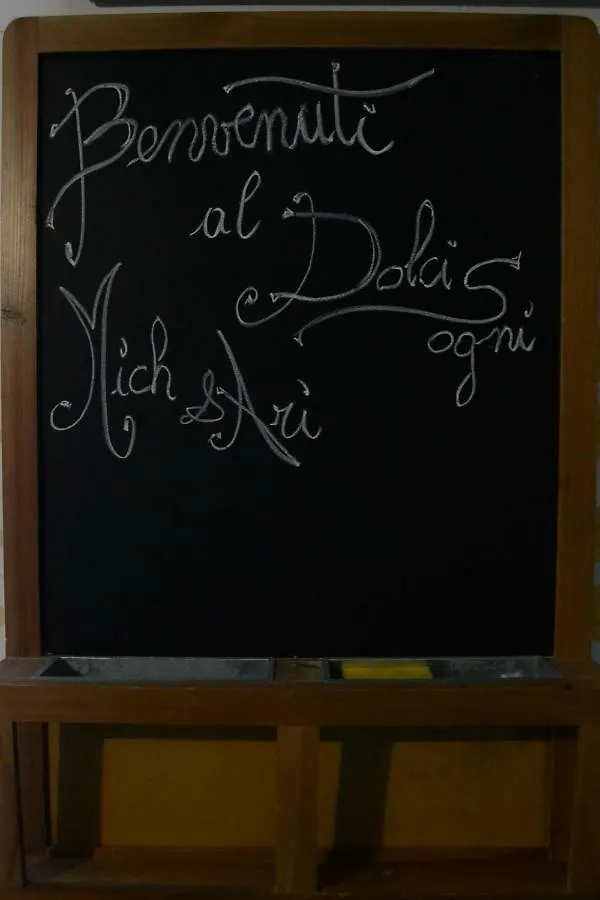 Benvenuti
al Dolci Sogni
Mich & Ari